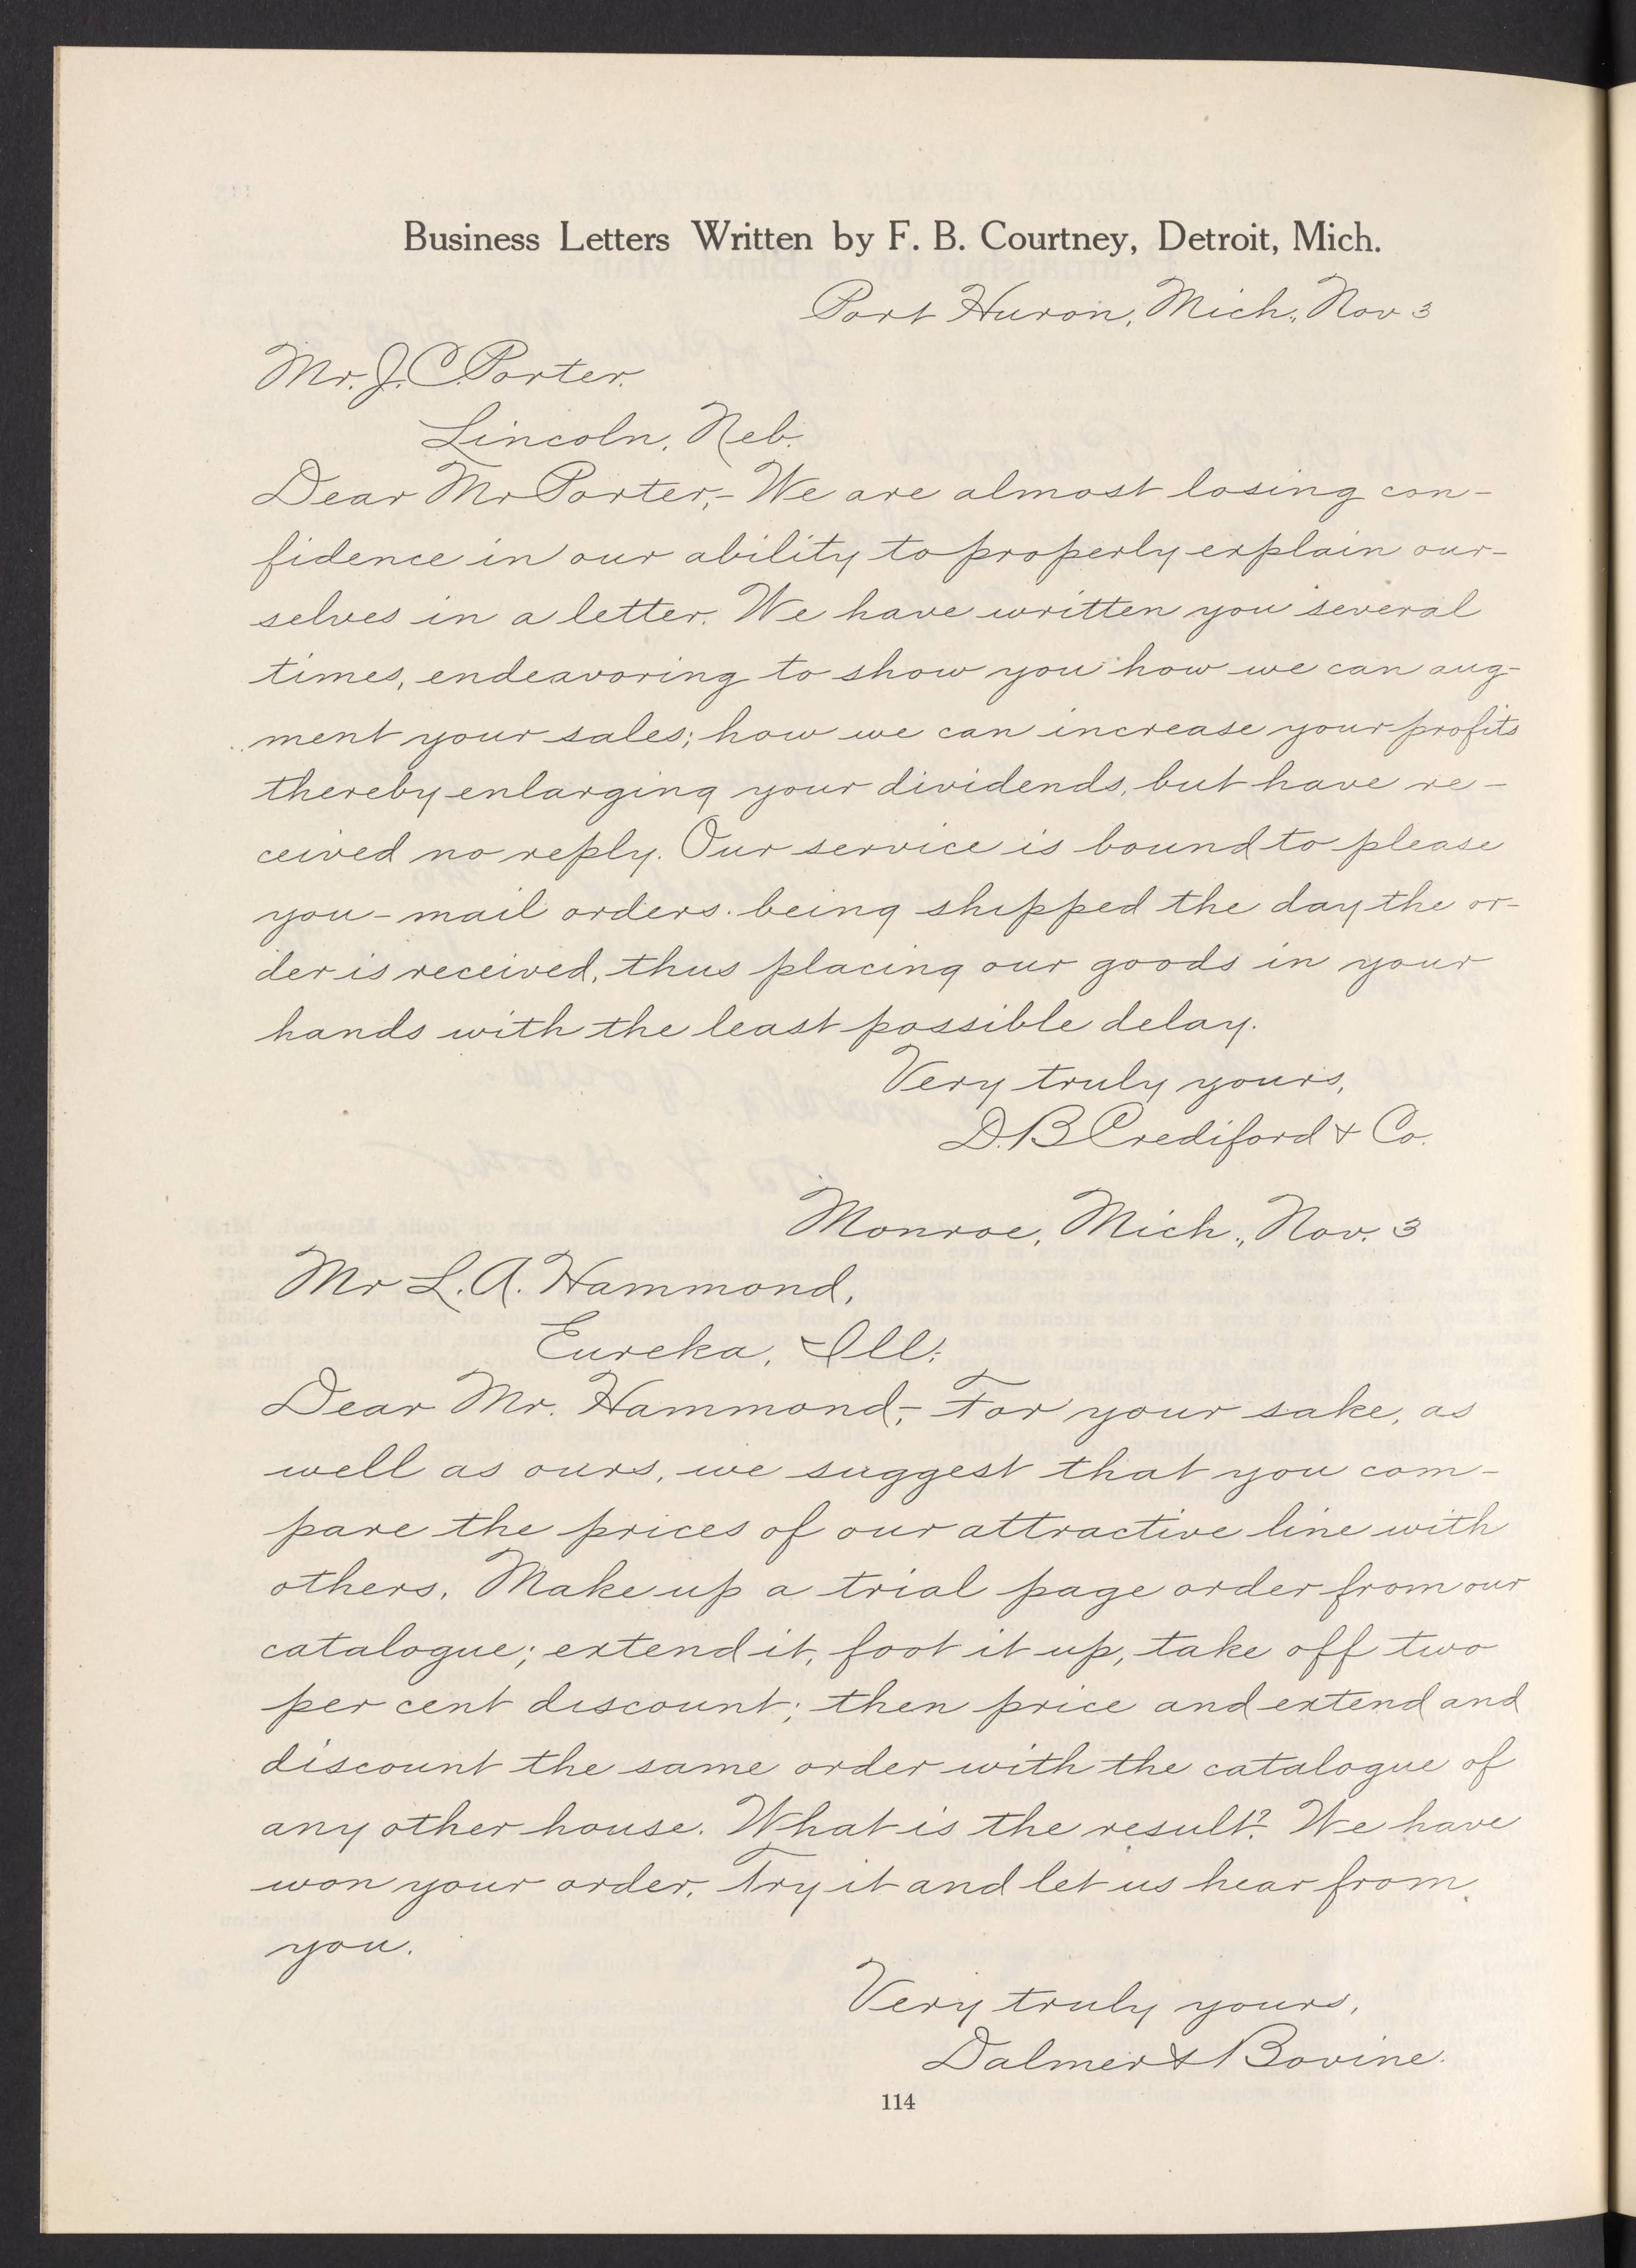 Business Letters Written by F. B. Courtney, Detroit, Mich.
Port Huron, Mich., Nov 3
Mr. J. C. Porter.
Lincoln, Neb.
Dear Mr Porter,- We are almost losing con-
fidence in our ability to properly explain our-
selves in a letter. We have written you several
times, endeavoring to show you how we can aug-
ment your sales; how we can increase your profits
thereby enlarging your dividends, but have re-
ceived no reply. Our service is bound to please
you - mail orders being shipped the day the or-
der is received, thus placing our goods in your
hands with the least possible delay.
Very truly yours,
D. B Crediford & Co.
Monroe, Mich., Nov. 3
Mr L. A. Hammond,
Eureka, Ill.
Dear Mr. Hammond,- For your sake, as
well as ours, we suggest that you com-
pare the prices of our attractive line with
others. Make up a trial page order from our
catalogue; extend it, foot it up, take off two
per cent discount; then price and extend and
discount the same order with the catalogue of
any other house. What is the result? We have
won your order. Try it and let us hear from
you.
Very truly yours,
Dalmer & Bovine.
114